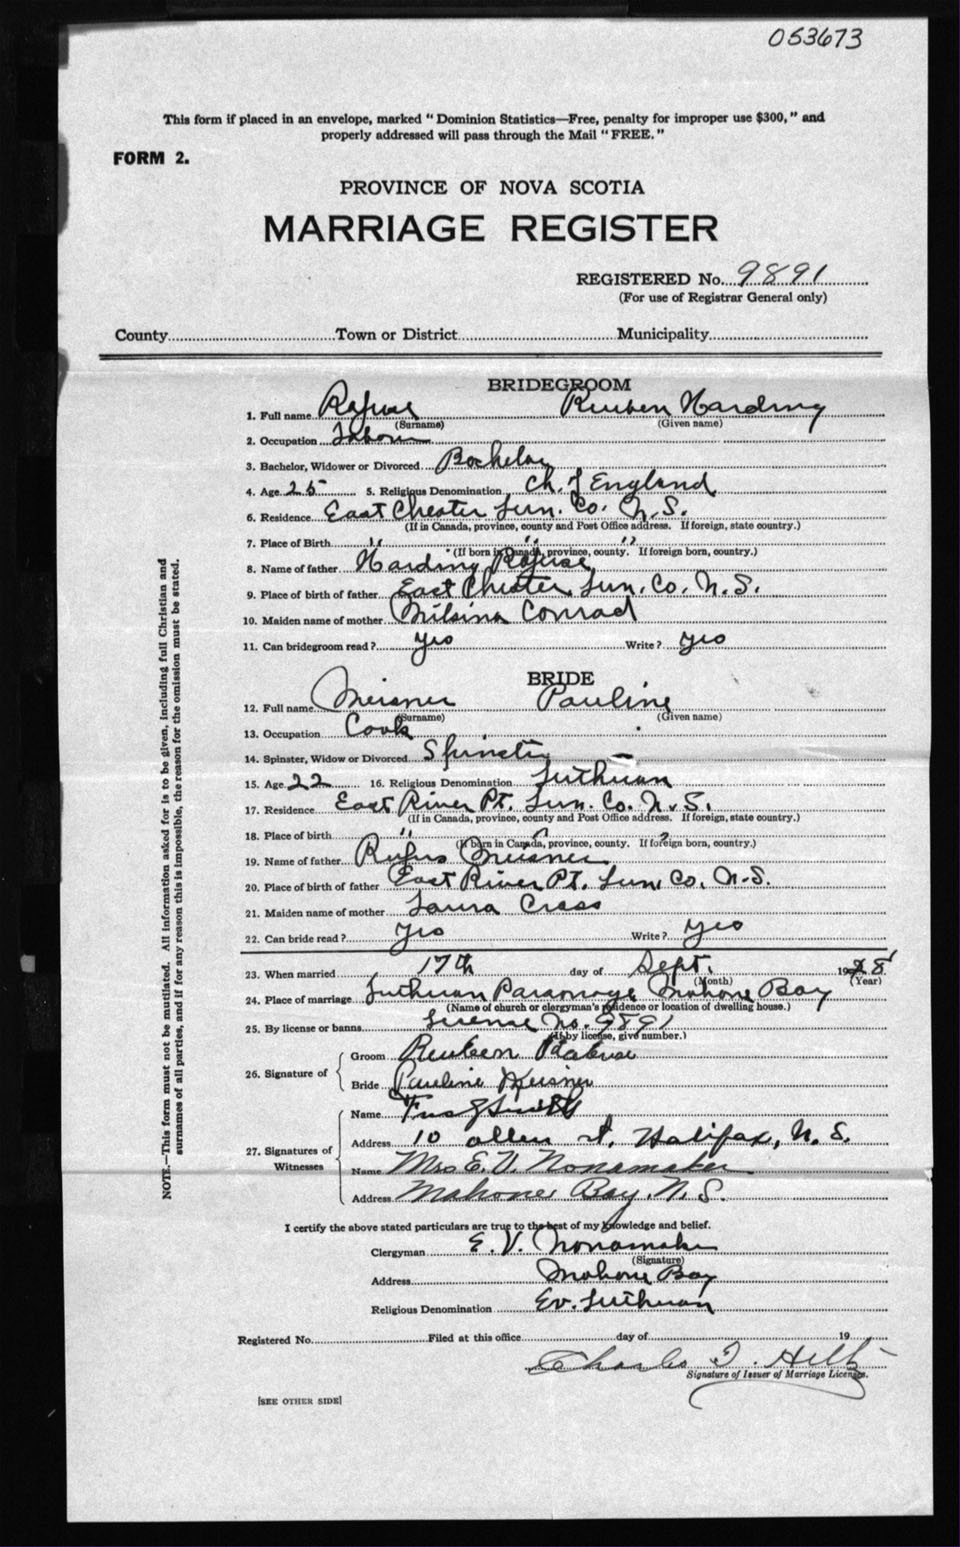 053673
This form if placed in an envelope, marked "Dominion Statistics—Free, penalty for improper use $300," and
properly addressed will pass through the Mail "FREE."
FORM 2.
PROVINCE OF NOVA SCOTIA
MARRIAGE REGISTER
REGISTERED No. 9891
(For use of Registrar General only)
County Town or District Municipality
BRIDEGROOM
1. Full name Rafuse Reuben Harding
(Surname) (Given name)
2. Occupation Laborer
3. Bachelor, Widower or Divorced Bachelor
4. Age 25 5. Religious Denomination Ch. of England
6. Residence East Chester Lun. Co. N.S.
(If in Canada, province, county and Post Office address. If foreign, state country.)
7. Place of Birth " " "
(If born in Canada, province, county. If foreign born, country.)
8. Name of father Harding Rafuse
9. Place of birth of father East Chester, Lun. Co. N.S.
10. Maiden name of mother Milsina Conrad
11. Can bridegroom read? yes Write? yes
BRIDE
12. Full name Meisner Pauline
(Surname) (Given name)
13. Occupation Cook
14. Spinster, Widow or Divorced Spinster
15. Age 22 16. Religious Denomination Lutheran
17. Residence East River Pt. Lun. Co. N.S.
(If in Canada, province, county and Post Office address. If foreign, state country.)
18. Place of birth " " "
(If born in Canada, province, county. If foreign born, country.)
19. Name of father Rufus Meisner
20. Place of birth of father East River Pt. Lun. Co. N.S.
21. Maiden name of mother Laura Cross
22. Can bride read? yes Write? yes
23. When married 17th day of Sept. 1928
(Month) (Year)
24. Place of marriage Lutheran Parsonage Mahone Bay
(Name of church or clergyman's residence or location of dwelling house.)
25. By license or banns License No. 9891
(If by license, give number.)
26. Signature of Groom Reuben Rafuse
Bride Pauline Meisner
27. Signatures of Witnesses
Name
Address 10 Allen St. Halifax, N.S.
Name Mrs E. V. Nonamaker
Address Mahone Bay, N.S.
I certify the above stated particulars are true to the best of my knowledge and belief.
Clergyman E. V. Nonamaker
(Signature)
Address Mahone Bay
Religious Denomination Ev. Lutheran
Registered No. Filed at this office day of 19
Charles I. Hilty
Signature of Issuer of Marriage Licenses.
[SEE OTHER SIDE]
NOTE.—This form must not be mutilated. All information asked for is to be given, including full Christian and
surnames of all parties, and if for any reason this is impossible, the reason for the omission must be stated.